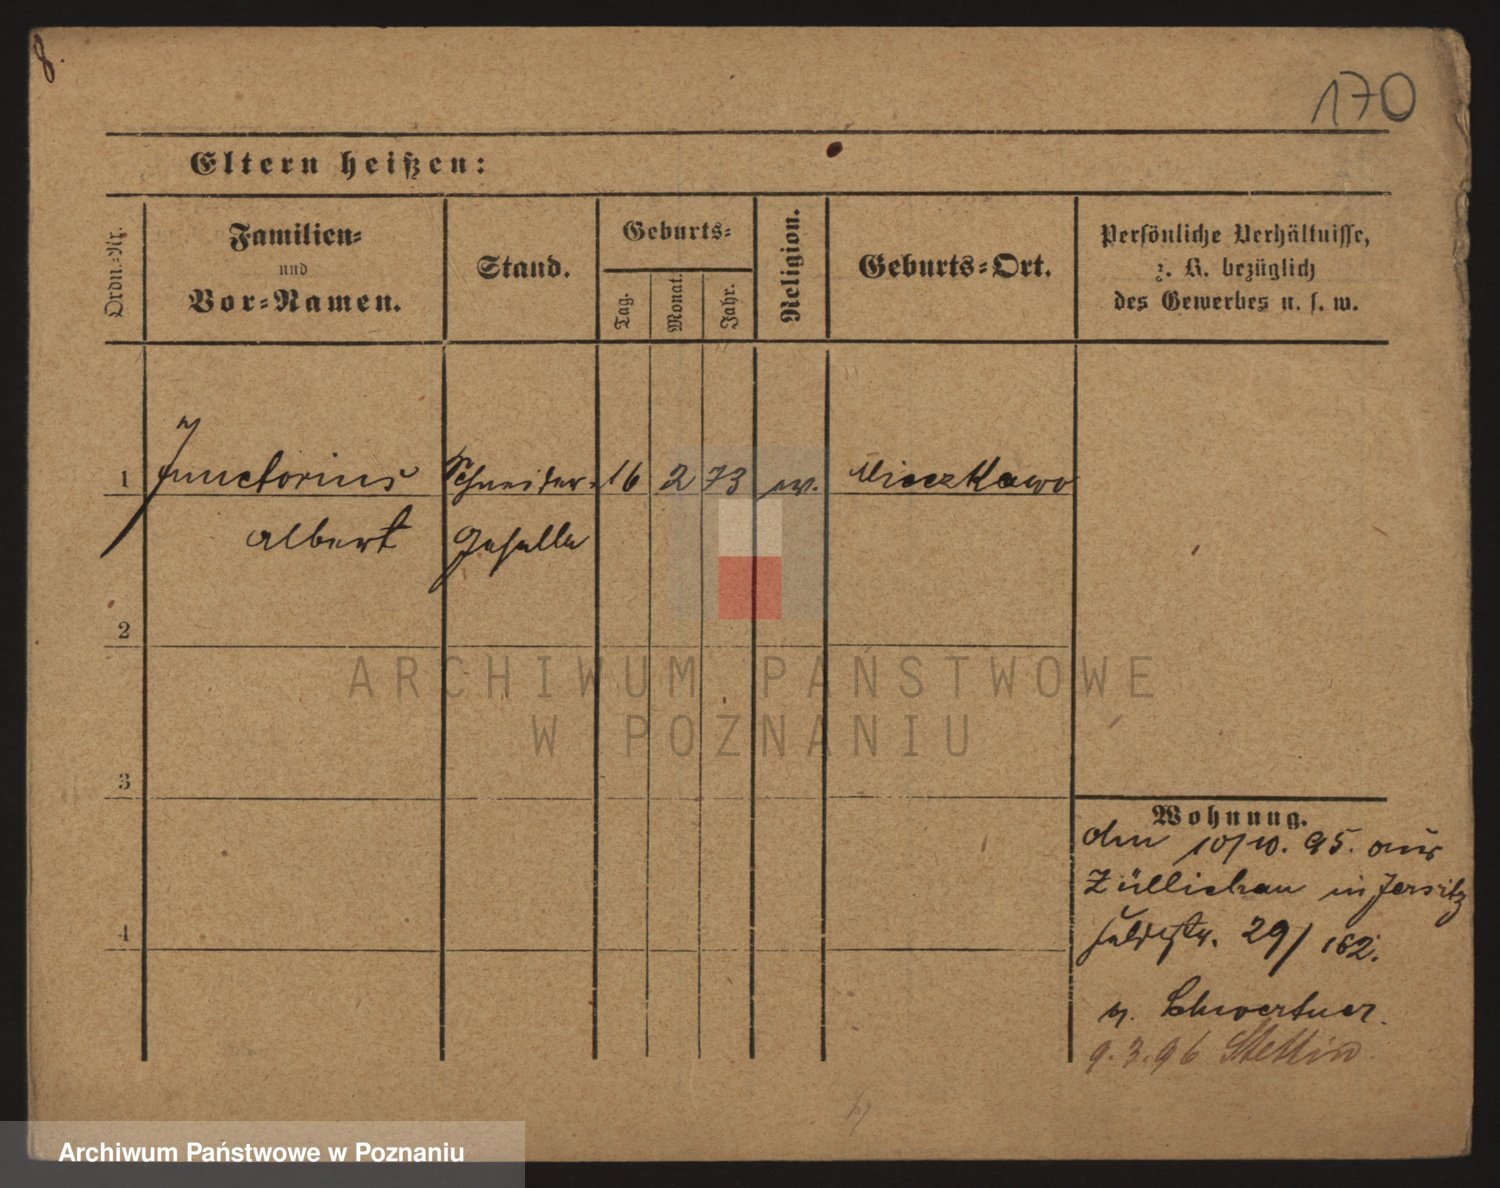 8.
170
Eltern heißen:
Ordn.-Nr.
Familien-
und
Vor-Namen.
Stand.
Geburts-
Tag.
Monat.
Jahr.
Religion.
Geburts-Ort.
Persönliche Verhältnisse,
z. B. bezüglich
des Gewerbes u. s. w.
1 Junctorius Schneider- 16 2 73 Mieczkowo
Albert Geselle
2
3
4
Wohnung.
den 10/10. 95. aus
Züllichau in Jersitz
Feldstr. 29/162.
b. Schwertner.
9.3.96 Stettin.
ARCHIWUM PAŃSTWOWE
W POZNANIU
Archiwum Państwowe w Poznaniu